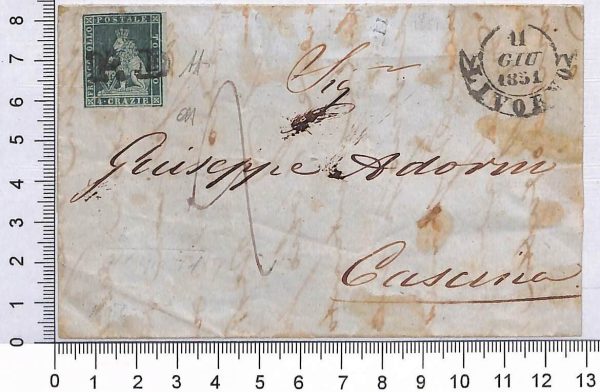 FRANCOBOLLO POSTALE TO
4. CRAZIE
P.D
11
GIU
1851
LIVORNO
Sig
Giuseppe Adorni
Cascina
8
7
6
5
4
3
2
1
0
0 1 2 3 4 5 6 7 8 9 10 11 12 13